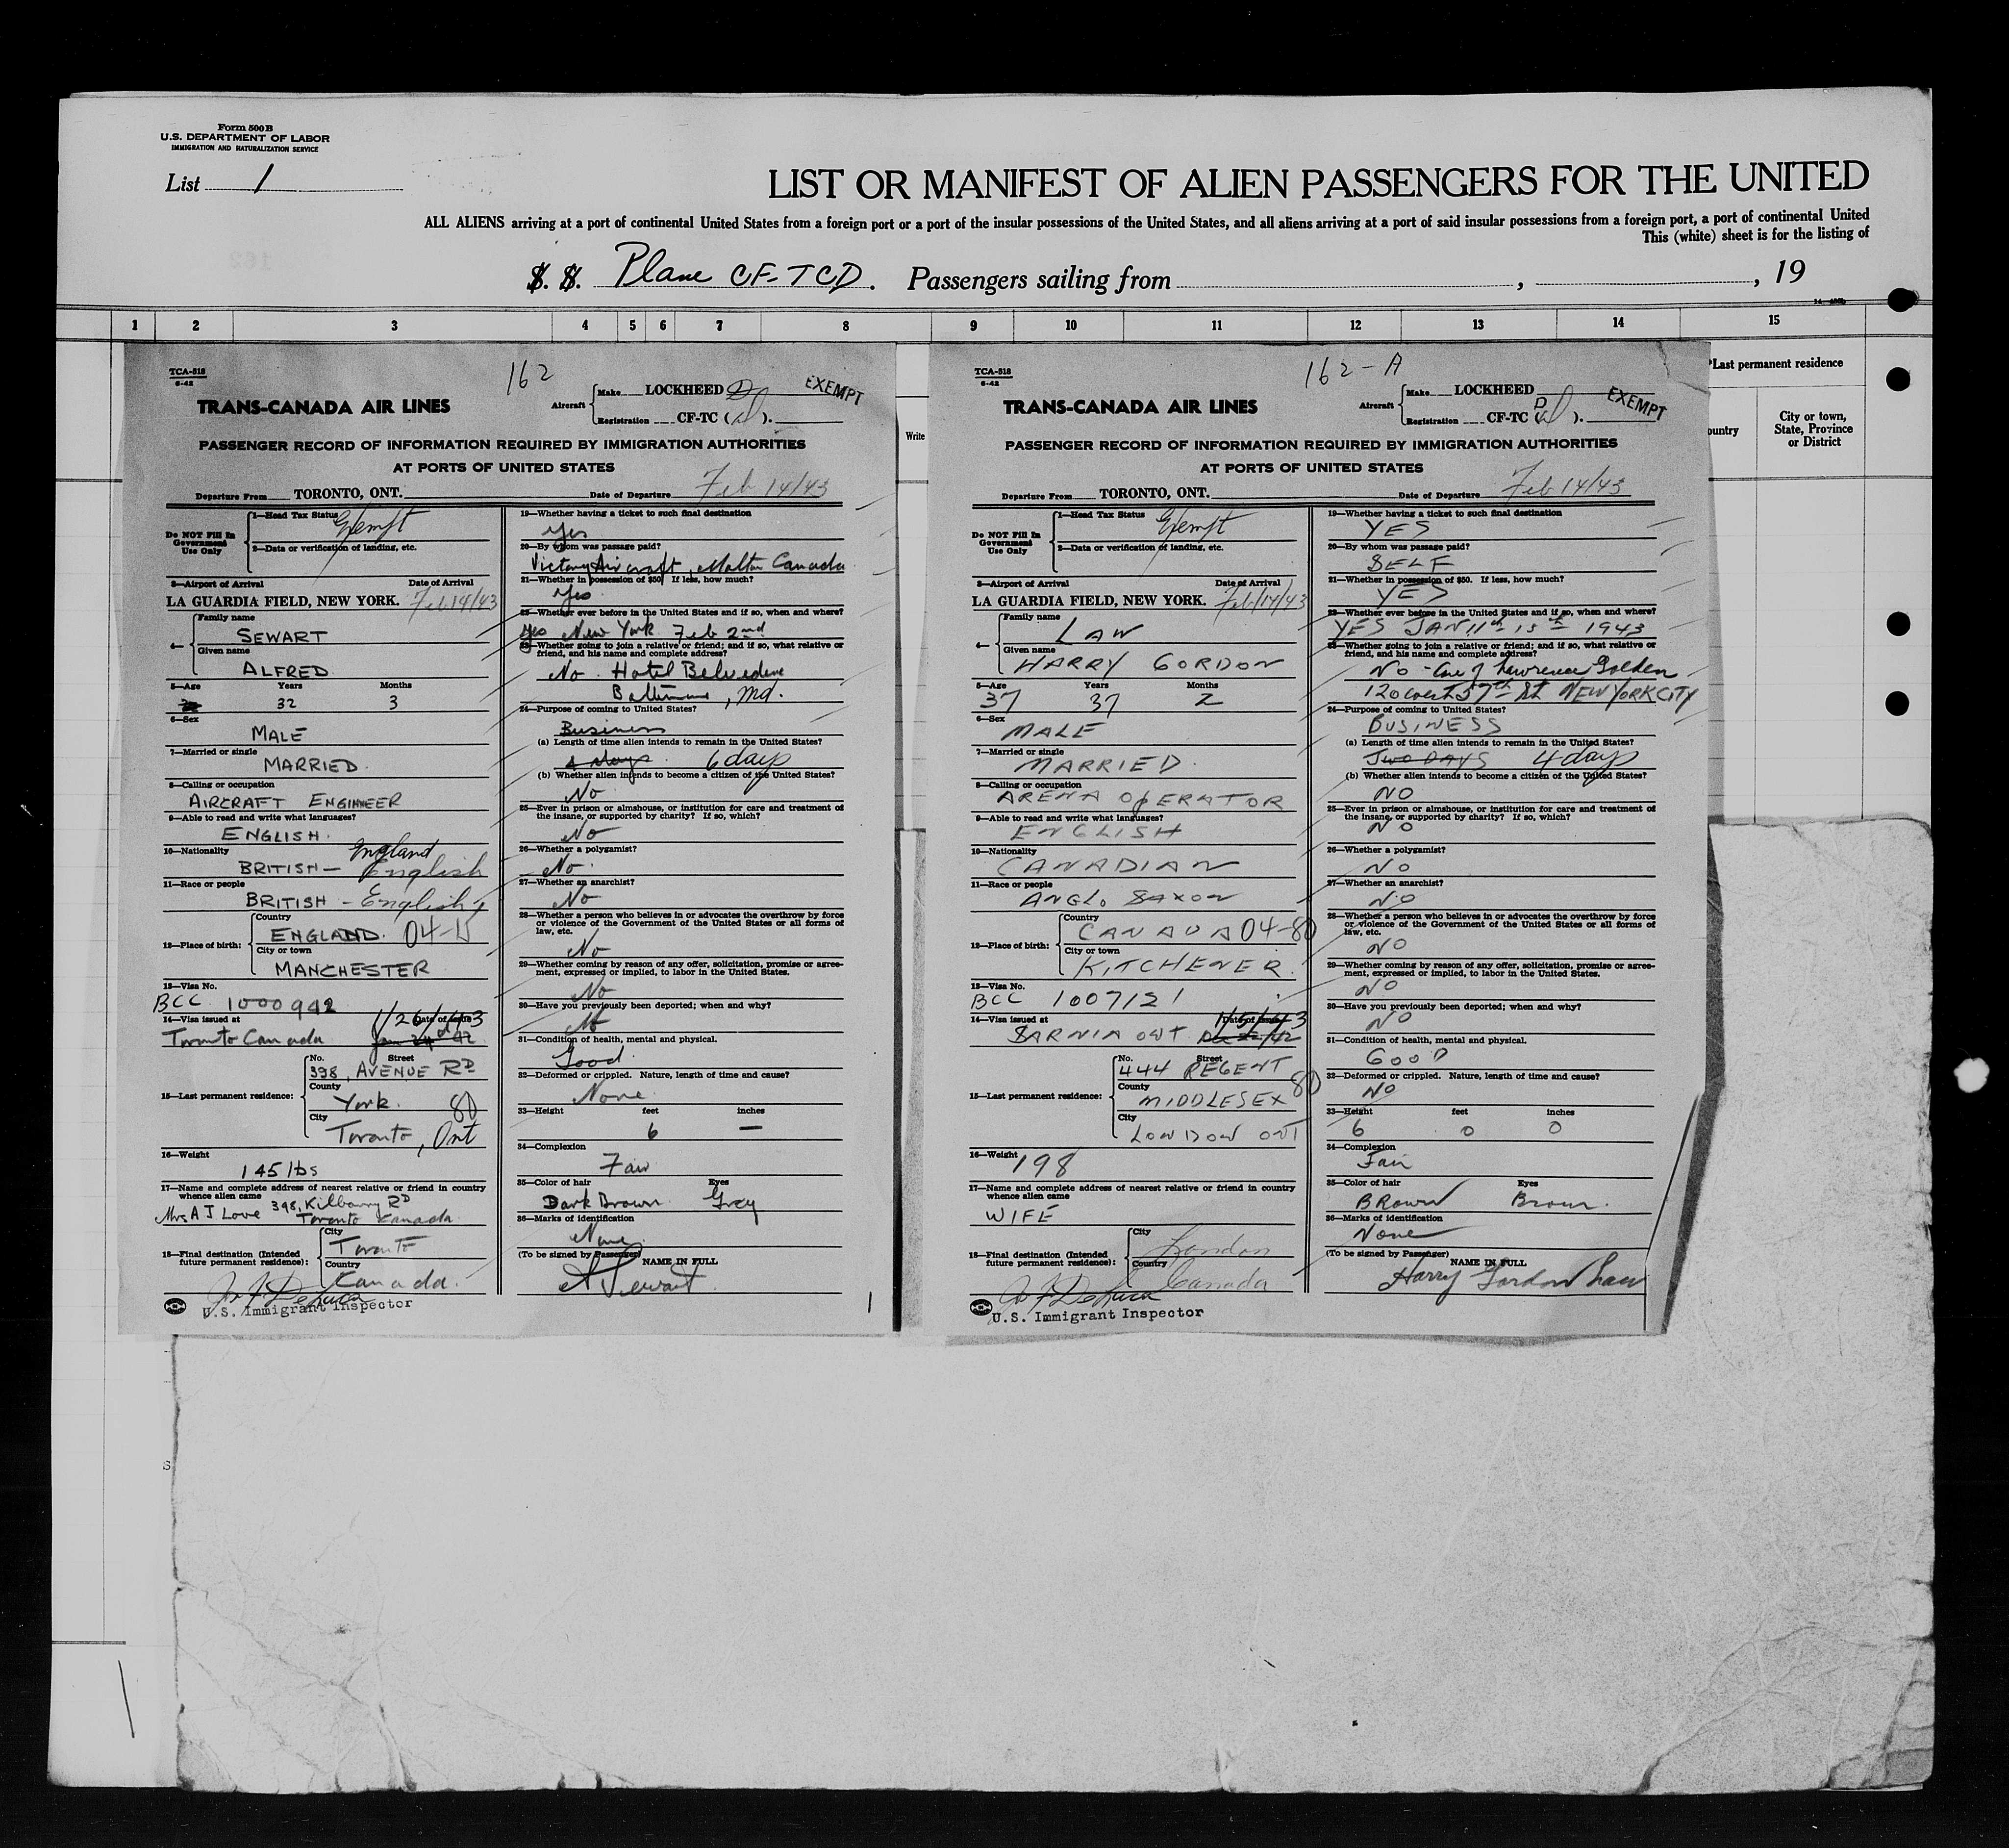 Form 500B
U.S. DEPARTMENT OF LABOR
IMMIGRATION AND NATURALIZATION SERVICE
List 1
LIST OR MANIFEST OF ALIEN PASSENGERS FOR THE UNITED
ALL ALIENS arriving at a port of continental United States from a foreign port or a port of the insular possessions of the United States, and all aliens arriving at a port of said insular possessions from a foreign port, a port of continental United
This (white) sheet is for the listing of
S. S. Plane CF-TCD. Passengers sailing from , , 19
1 2 3 4 5 6 7 8 9 10 11 12 13 14 15
Last permanent residence
Write
ountry
City or town, State, Province or District
TCA-518
6-42
162
TRANS-CANADA AIR LINES
Aircraft
Make LOCKHEED
Registration CF-TC (d).
EXEMPT
PASSENGER RECORD OF INFORMATION REQUIRED BY IMMIGRATION AUTHORITIES
AT PORTS OF UNITED STATES
Departure From TORONTO, ONT. Date of Departure Feb 14/43
Do NOT Fill In Government Use Only
1—Head Tax Status Exempt
2—Data or verification of landing, etc.
3—Airport of Arrival Date of Arrival
LA GUARDIA FIELD, NEW YORK. Feb 14/43
4—
Family name
SEWART
Given name
ALFRED
5—Age Years Months
32 3
6—Sex
MALE
7—Married or single
MARRIED.
8—Calling or occupation
AIRCRAFT ENGINEER
9—Able to read and write what languages?
ENGLISH.
10—Nationality England
BRITISH — English
11—Race or people
BRITISH - English
12—Place of birth:
Country
ENGLAND. 04-
City or town
MANCHESTER
13—Visa No.
BCC 1000942
14—Visa issued at Date of issue 1/26/43
Toronto Canada
15—Last permanent residence:
No. Street
398, AVENUE RD
County
York. 80
City
Toronto, Ont
16—Weight
145 lbs
17—Name and complete address of nearest relative or friend in country
whence alien came 398, Kilbarry RD
Mrs A J Love Toronto Canada
18—Final destination (Intended future permanent residence):
City
Toronto
Country
Canada.
U.S. Immigrant Inspector
19—Whether having a ticket to such final destination
Yes
20—By whom was passage paid?
Victory Aircraft, Malton Canada
21—Whether in possession of $50. If less, how much?
Yes
22—Whether ever before in the United States and if so, when and where?
Yes New York Feb 2nd
23—Whether going to join a relative or friend; and if so, what relative or
friend, and his name and complete address?
No. Hotel Belvedere
Baltimore, Md.
24—Purpose of coming to United States?
Business
(a) Length of time alien intends to remain in the United States?
6 days
(b) Whether alien intends to become a citizen of the United States?
No
25—Ever in prison or almshouse, or institution for care and treatment of
the insane, or supported by charity? If so, which?
No
26—Whether a polygamist?
No.
27—Whether an anarchist?
No
28—Whether a person who believes in or advocates the overthrow by force
or violence of the Government of the United States or all forms of
law, etc.
No
29—Whether coming by reason of any offer, solicitation, promise or agree-
ment, expressed or implied, to labor in the United States.
No
30—Have you previously been deported; when and why?
No
31—Condition of health, mental and physical.
Good
32—Deformed or crippled. Nature, length of time and cause?
None
33—Height feet inches
6 —
34—Complexion
Fair
35—Color of hair Eyes
Dark Brown Grey
36—Marks of identification
None
(To be signed by Passenger) NAME IN FULL
A Sewart
1
TCA-518
6-42
162-A
TRANS-CANADA AIR LINES
Aircraft
Make LOCKHEED
Registration CF-TC (D).
EXEMPT
PASSENGER RECORD OF INFORMATION REQUIRED BY IMMIGRATION AUTHORITIES
AT PORTS OF UNITED STATES
Departure From TORONTO, ONT. Date of Departure Feb 14/43
Do NOT Fill In Government Use Only
1—Head Tax Status Exempt
2—Data or verification of landing, etc.
3—Airport of Arrival Date of Arrival
LA GUARDIA FIELD, NEW YORK. Feb/14/43
4—
Family name
LAW
Given name
HARRY GORDON
5—Age Years Months
37 37 2
6—Sex
MALE
7—Married or single
MARRIED.
8—Calling or occupation
ARENA OPERATOR
9—Able to read and write what languages?
ENGLISH
10—Nationality
CANADIAN
11—Race or people
ANGLO SAXON
12—Place of birth:
Country
CANADA 04-80
City or town
KITCHENER.
13—Visa No.
BCC 1007121
14—Visa issued at Date of issue 1/5/43
SARNIA ONT
15—Last permanent residence:
No. Street
444 REGENT
County 80
MIDDLESEX
City
LONDON ONT
16—Weight
198
17—Name and complete address of nearest relative or friend in country
whence alien came
WIFE
18—Final destination (Intended future permanent residence):
City
London
Country
Canada
U.S. Immigrant Inspector
19—Whether having a ticket to such final destination
YES
20—By whom was passage paid?
SELF
21—Whether in possession of $50. If less, how much?
YES
22—Whether ever before in the United States and if so, when and where?
YES JAN 11th 15th 1943
23—Whether going to join a relative or friend; and if so, what relative or
friend, and his name and complete address?
No - Care of Lawrence Golden
120 West 57th St NEW YORK CITY
24—Purpose of coming to United States?
BUSINESS
(a) Length of time alien intends to remain in the United States?
Two DAYS 4 days
(b) Whether alien intends to become a citizen of the United States?
NO
25—Ever in prison or almshouse, or institution for care and treatment of
the insane, or supported by charity? If so, which?
NO
26—Whether a polygamist?
NO
27—Whether an anarchist?
NO
28—Whether a person who believes in or advocates the overthrow by force
or violence of the Government of the United States or all forms of
law, etc.
NO
29—Whether coming by reason of any offer, solicitation, promise or agree-
ment, expressed or implied, to labor in the United States.
NO
30—Have you previously been deported; when and why?
NO
31—Condition of health, mental and physical.
GOOD
32—Deformed or crippled. Nature, length of time and cause?
NO
33—Height feet inches
6 0 0
34—Complexion
Fair
35—Color of hair Eyes
BROWN Brown.
36—Marks of identification
None
(To be signed by Passenger) NAME IN FULL
Harry Gordon Law